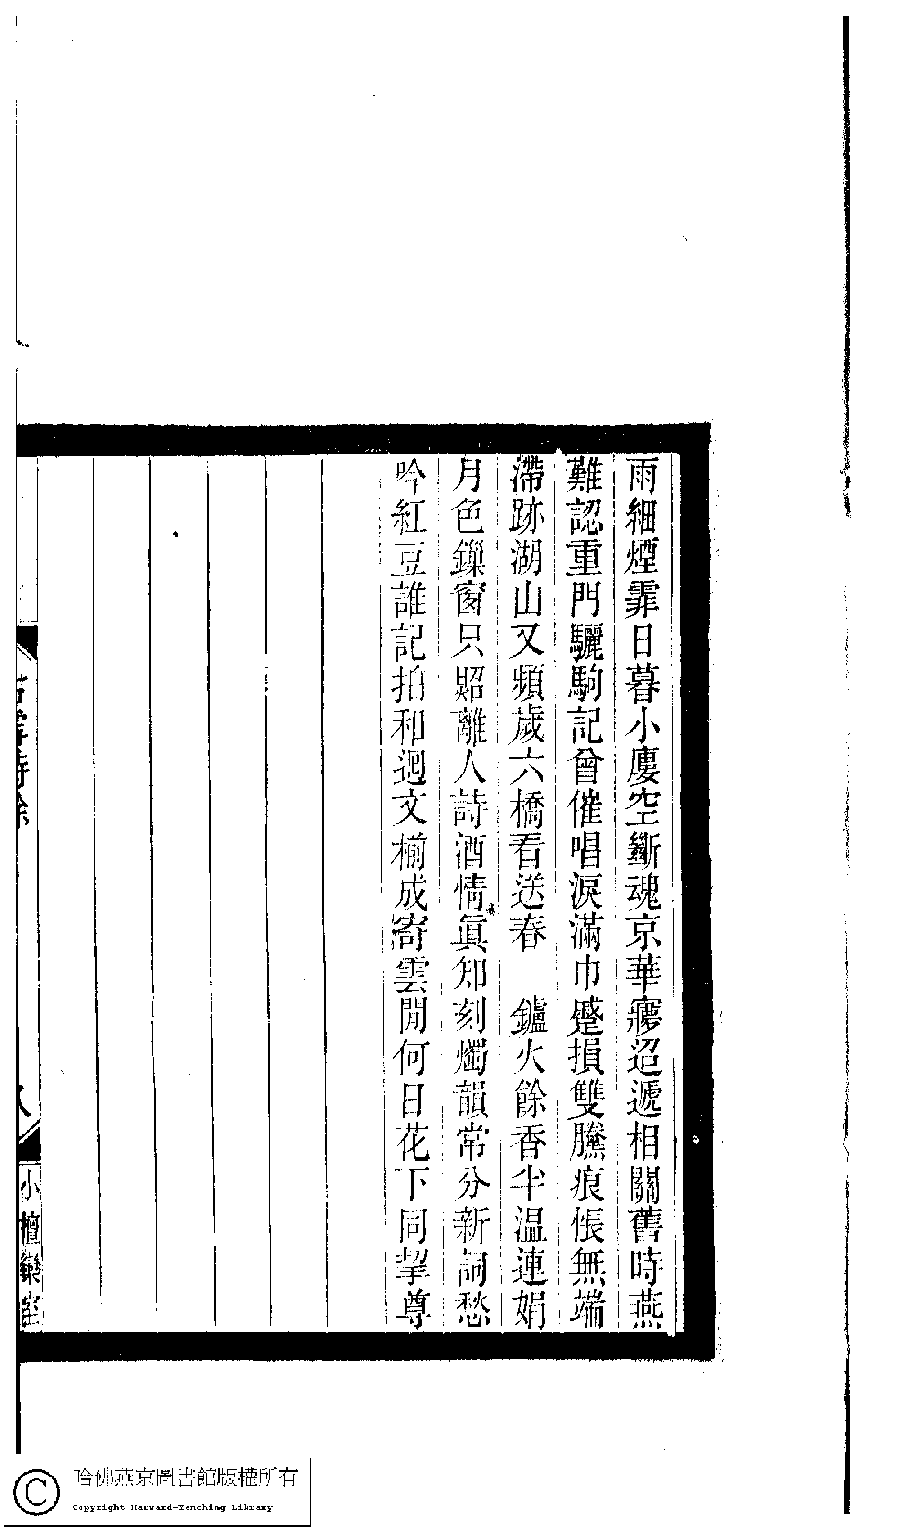 雨細煙霏日暮小廔空斷魂京華寱迢遞相關舊時燕
難認重門驪駒記曾催唱淚滿巾蹙損雙騰痕悵無端
滯跡湖山又頻歲六橋看送春　鑪火餘香半溫連娟
月色鏁窗只照離人詩酒情真知刻燭韻常分新詞愁
吟紅豆誰記拍和迴文椾成寄雲閒何日花下同挈尊
詩餘
八
小檀欒室
哈佛燕京圖書館版權所有
Copyright Harvard-Yenching Library